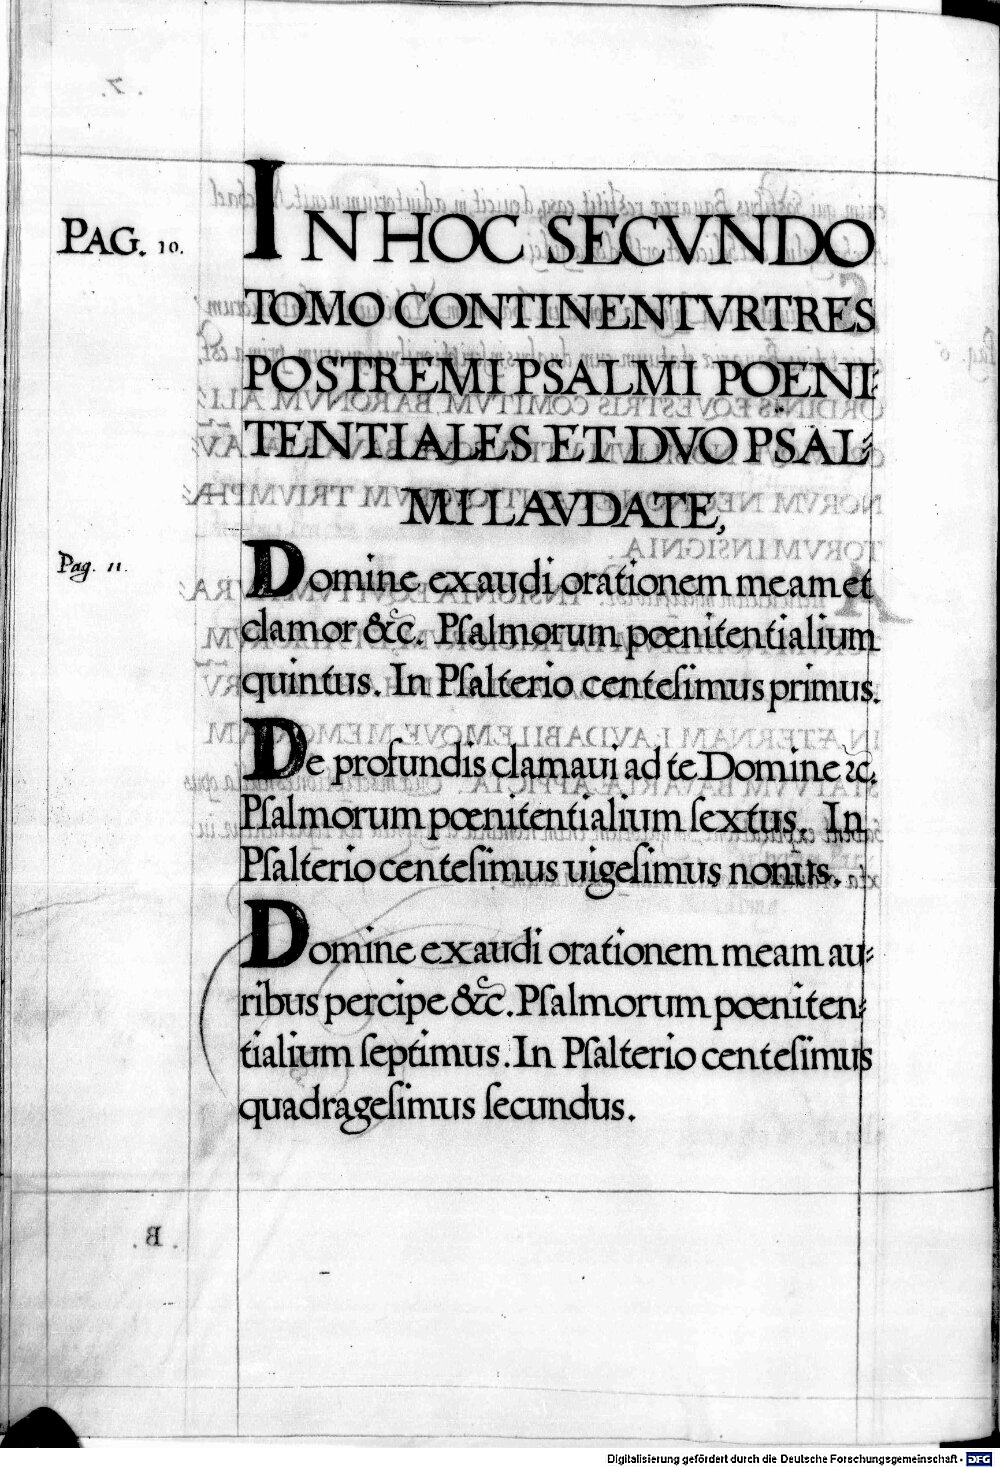 PAG. 10.
IN HOC SECVNDO
TOMO CONTINENTVR TRES
POSTREMI PSALMI POENI:
TENTIALES ET DVO PSAL:
MI LAVDATE,
Pag. 11.
Domine exaudi orationem meam et
clamor &c. Pſalmorum pœnitentialium
quintus. In Pſalterio centeſimus primus.
De profundis clamaui ad te Domine ꝛc.
Pſalmorum pœnitentialium ſextus. In
Pſalterio centeſimus uigeſimus nonus.
Domine exaudi orationem meam au:
ribus percipe &c. Pſalmorum pœniten:
tialium ſeptimus. In Pſalterio centeſimus
quadrageſimus ſecundus.
Digitalisierung gefördert durch die Deutsche Forschungsgemeinschaft - DFG